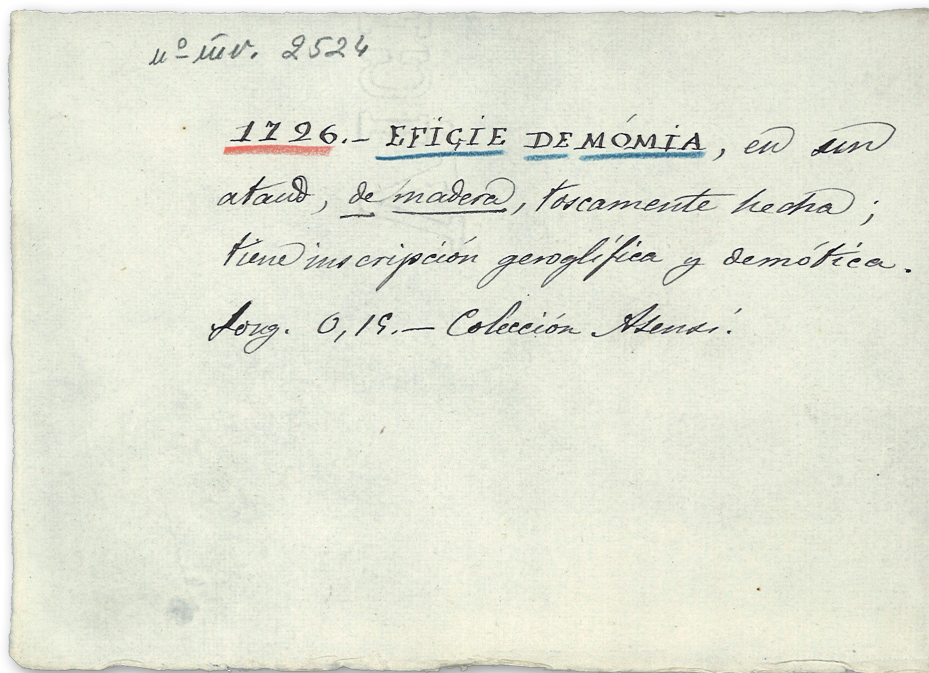 nº inv. 2524
1726.- EFIGIE DE MÓMIA, en un
ataud, de madera, toscamente hecha;
tiene inscripción geroglífica y demótica.
Long. 0,15.- Colección Asensi.